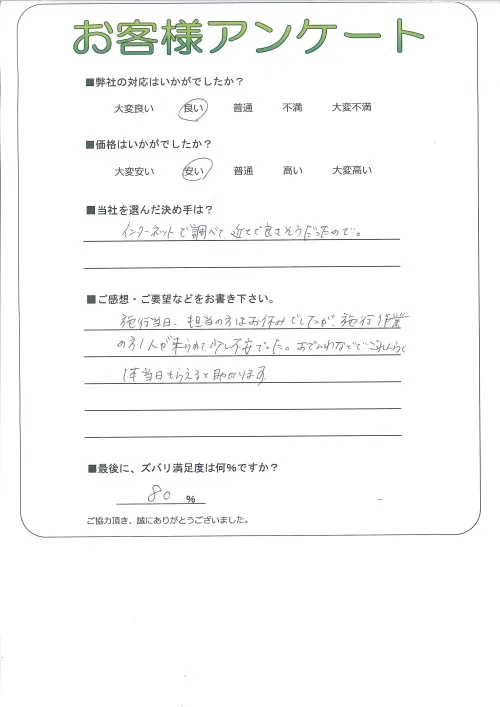 お客様アンケート
■弊社の対応はいかがでしたか？
大変良い 良い 普通 不満 大変不満
■価格はいかがでしたか？
大変安い 安い 普通 高い 大変高い
■当社を選んだ決め手は？
インターネットで調べて、近くで良さそうだったので。
■ご感想・ご要望などをお書き下さい。
施行当日、担当の方はお休みでしたが、施行作業
の方1人が来られて、少し不安でした。おでんわなどで ごれんらく
1本当日もらえると助かります
■最後に、ズバリ満足度は何%ですか？
80 %
ご協力頂き、誠にありがとうございました。